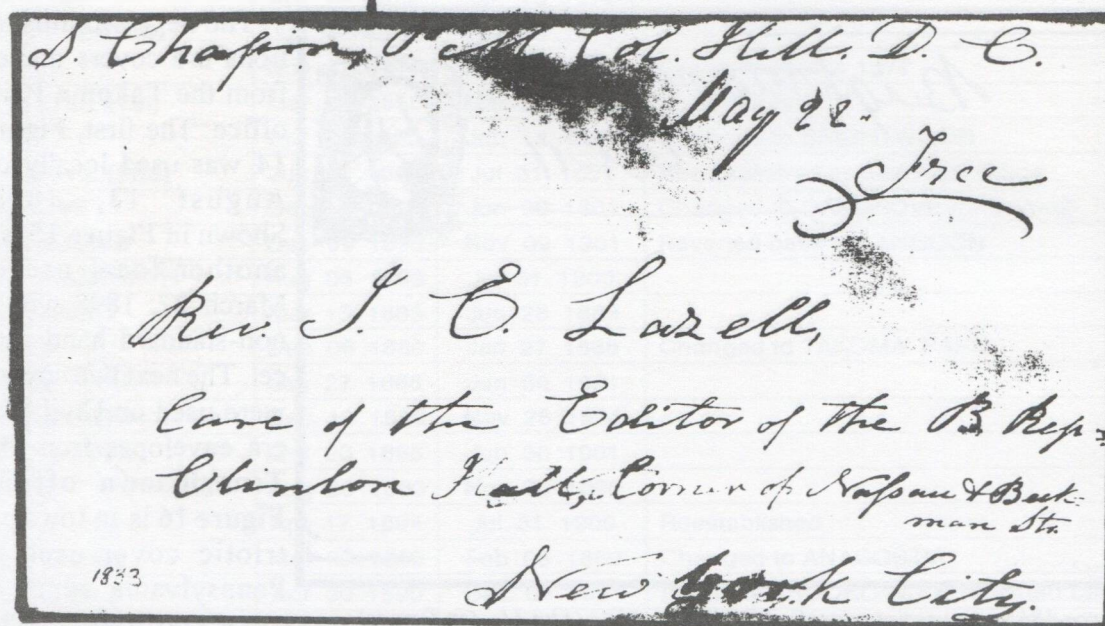 S. Chapin, P. M. Col. Hill. D. C.
May 22.
Free
Rev. J. C. Lazell,
Care of the Editor of the B Rep-
Clinton Hall, Corner of Nassau & Beek-
man Sts.
1833
New York City.